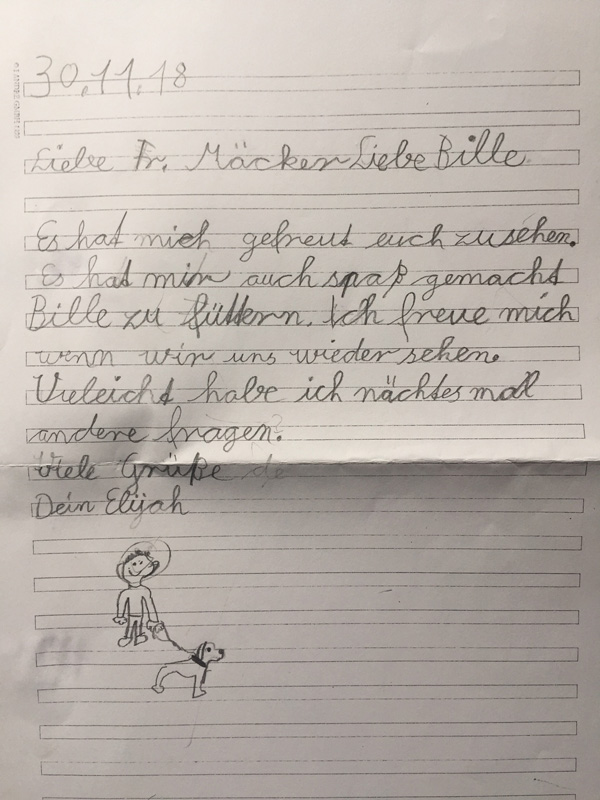 30.11.18
Liebe Fr. Mäcken Liebe Bille
Es hat mich gefreut euch zusehen.
Es hat mir auch spaß gemacht
Bille zu füttern. Ich freue mich
wenn wir uns wieder sehen.
Vieleicht habe ich nächtes mal
andere fragen.
Viele Grüße de
Dein Elijah